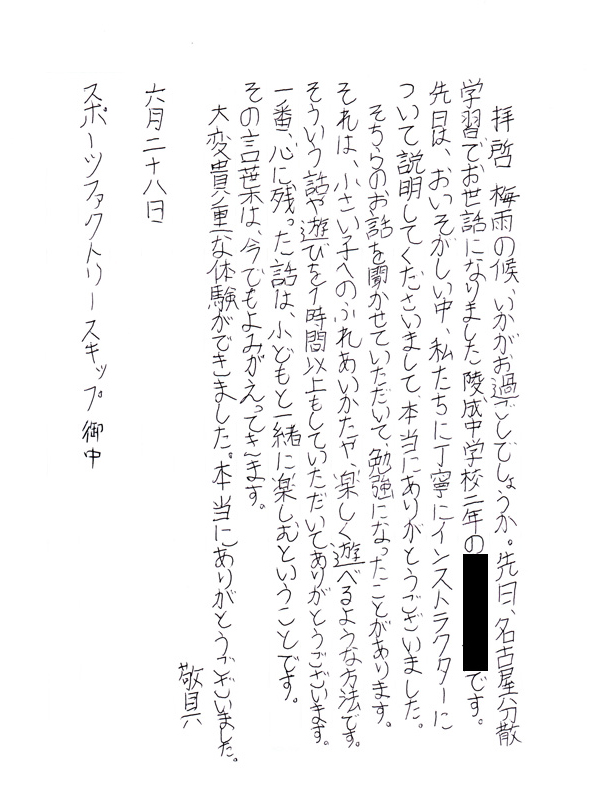 拝啓 梅雨の候、いかがお過ごしでしょうか。先日、名古屋分散
学習でお世話になりました陵成中学校二年の です。
先日は、おいそがしい中、私たちに丁寧にインストラクターに
ついて説明してくださいまして、本当にありがとうございました。
そちらのお話を聞かせていただいて、勉強になったことがあります。
それは、小さい子へのふれあいかたや、楽しく遊べるような方法です。
そういう話や遊びを1時間以上もしていただいてありがとうございます。
一番、心に残った話は、小どもと一緒に楽しむということです。
その言葉は、今でもよみがえってきます。
大変貴重な体験ができました。本当にありがとうございました。
敬具
六月二十八日
スポーツファクトリースキップ御中